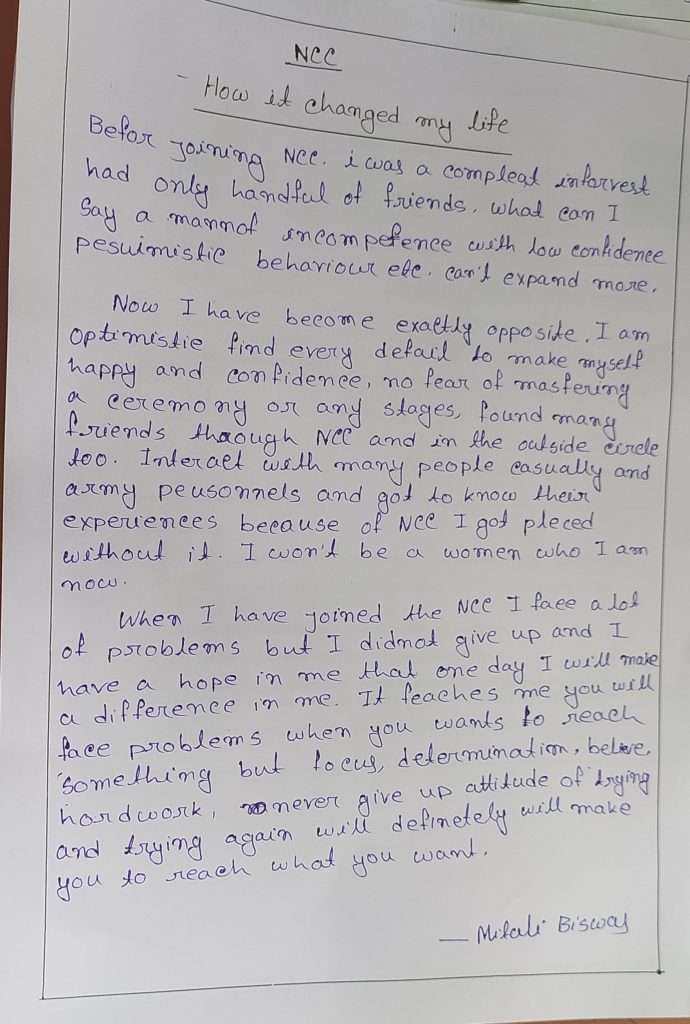 NCC
- How it changed my life
Befor joining NCC. i was a compleat intorvest
had only handful of friends. what can I
say a mannof incompetence with low confidence
pesuimistic behaviour etc. can't expand more.
Now I have become exactly opposite. I am
optimistic find every detail to make myself
happy and confidence, no fear of mastering
a ceremony or any stages, found many
friends thaough NCC and in the outside circle
too. Interact with many people casually and
army peusonnels and got to know their
experiences because of NCC I got pleced
without it. I won't be a women who I am
now.
When I have joined the NCC I face a lot
of problems but I didnot give up and I
have a hope in me that one day I will make
a difference in me. It teaches me you will
face problems when you wants to reach
something but focus, determination, belive,
hardwork, never give up attitude of trying
and trying again will definetely will make
you to reach what you want.
— Mitali Biswas